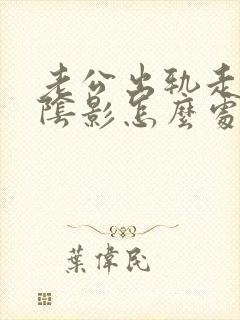 老公出轨走
陰影怎麼處
葉偉民